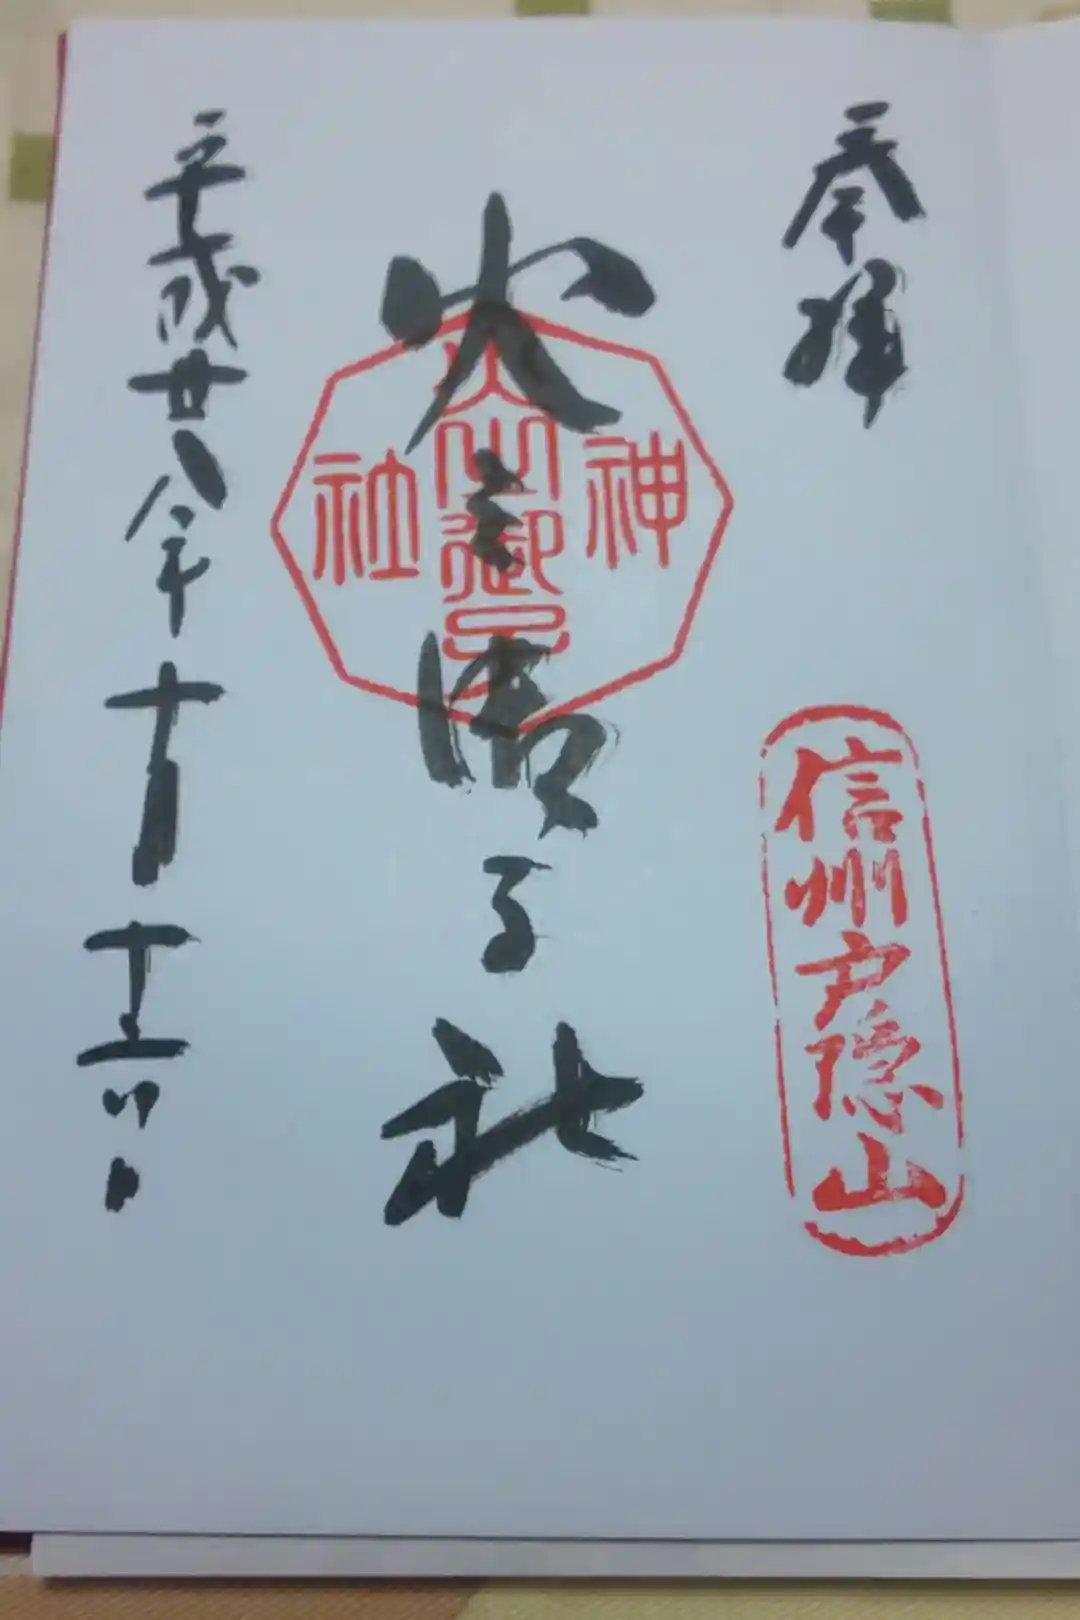 奉拝
信州戸隠山
火之御子社
神
火之御子
社
平成廿八年十月十六日